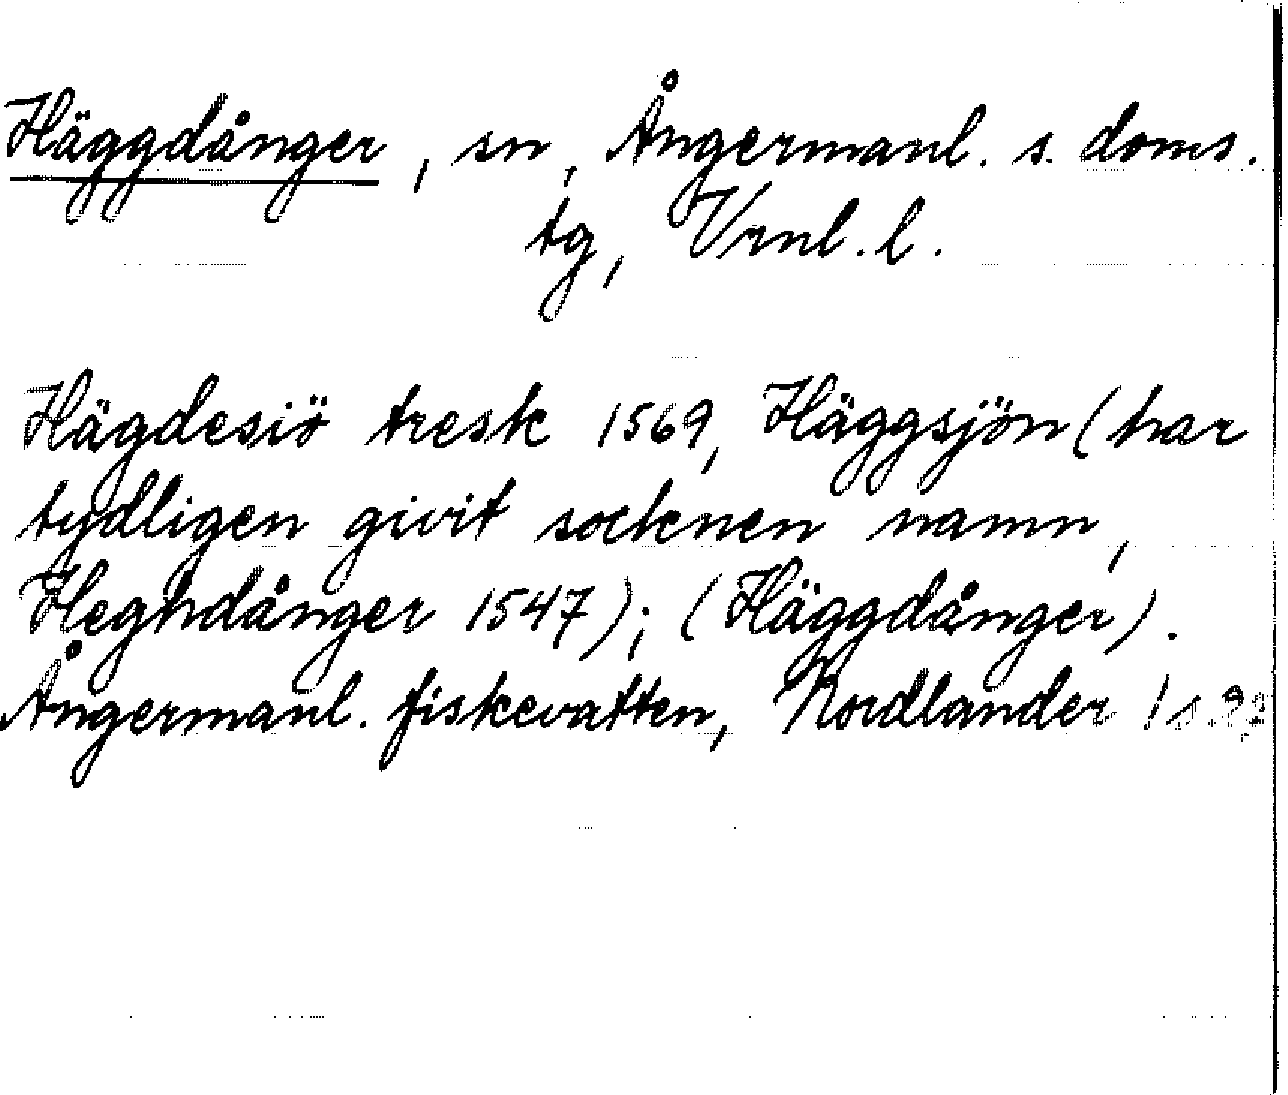 Häggdånger, sn, Ångermanl. s. doms.
tg, Vrnl. l.
Hägdesiö tresk 1569, Häggsjön (har
tydligen givit socknen namn,
Heghdånger 1547); (Häggdånger).
Ångermanl. fiskevatten, Nordlander